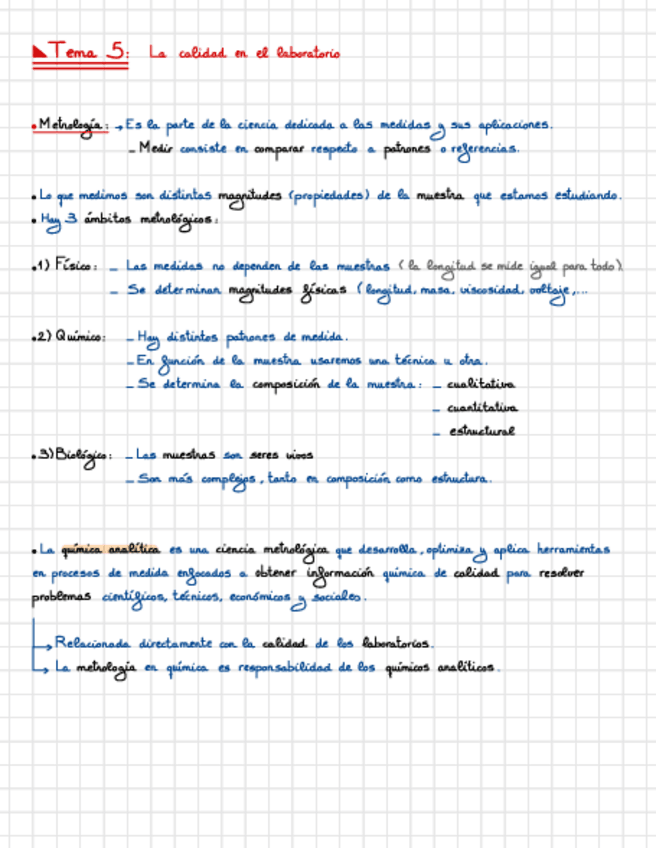 Tema 5: La calidad en el laboratorio
• Metrología: → Es la parte de la ciencia dedicada a las medidas y sus aplicaciones.
– Medir consiste en comparar respecto a patrones o referencias.
• Lo que medimos son distintas magnitudes (propiedades) de la muestra que estamos estudiando.
• Hay 3 ámbitos metrológicos:
• 1) Físico: – Las medidas no dependen de las muestras (la longitud se mide igual para todo)
– Se determinan magnitudes físicas (longitud, masa, viscosidad, voltaje,...
• 2) Químico: – Hay distintos patrones de medida.
– En función de la muestra usaremos una técnica u otra.
– Se determina la composición de la muestra: – cualitativa
– cuantitativa
– estructural
• 3) Biológico: – Las muestras son seres vivos
– Son más complejos, tanto en composición como estructura.
• La química analítica es una ciencia metrológica que desarrolla, optimiza y aplica herramientas
en procesos de medida enfocados a obtener información química de calidad para resolver
problemas científicos, técnicos, económicos y sociales.
→ Relacionada directamente con la calidad de los laboratorios.
→ La metrología en química es responsabilidad de los químicos analíticos.